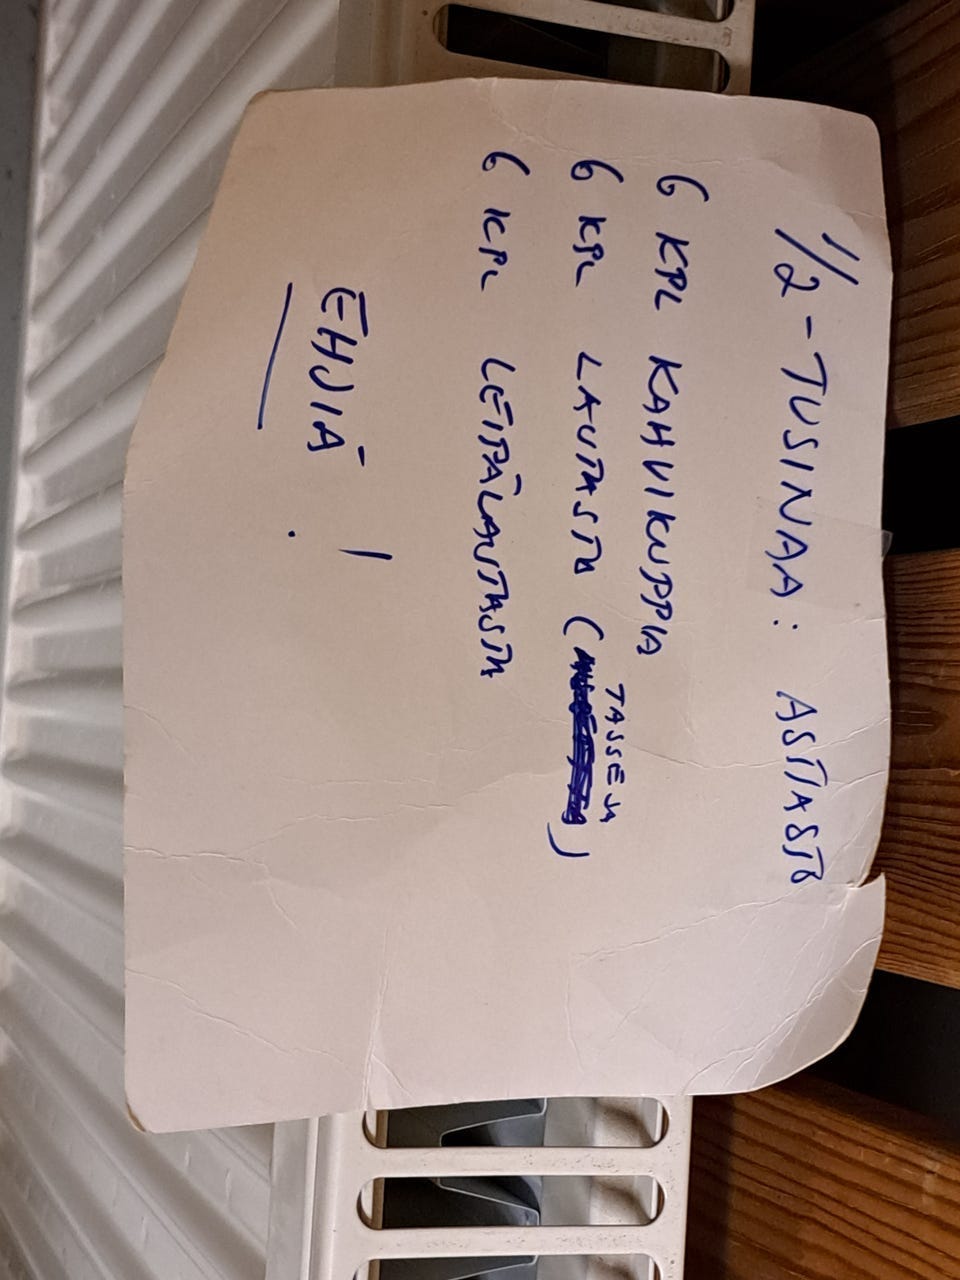 1/2-TUSINAA: ASTIASTO
6 KPL KAHVIKUPPIA
6 KPL LAUTASTA (TASSEJA)
6 KPL LEIPÄLAUTASTA
EHJIÄ!